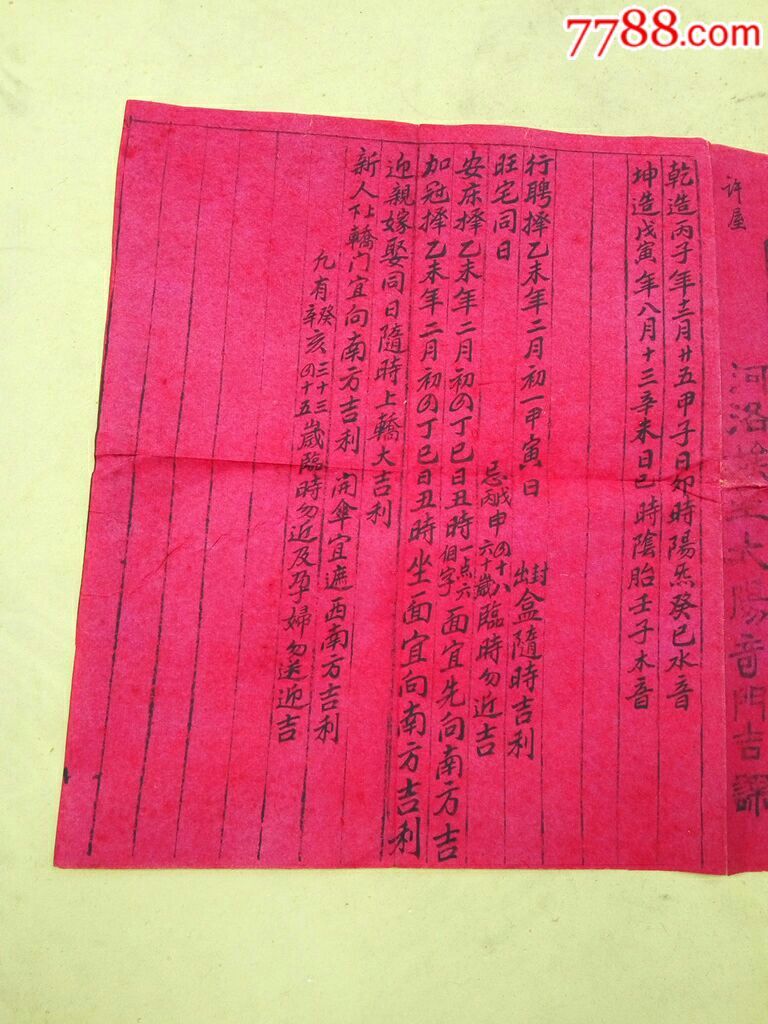 7788.com
许屋
河洛太陽奇門吉課
乾造丙子年十二月廿五甲子日卯時陽炁癸巳水音
坤造戊寅年八月十三辛未日巳時陰胎壬子木音
行聘擇乙未年二月初一甲寅日封出盒隨時吉利
旺宅同日忌戊丙申四十八六十歲臨時勿近吉
安床擇乙未年二月初四丁巳日丑時一点六個字面宜先向南方吉
加冠擇乙未年二月初四丁巳日丑時坐面宜向南方吉利
迎親嫁娶同日隨時上轎大吉利
新人上下轎门宜向南方吉利 開傘宜遮西南方吉利
凢有癸辛亥三十三四十五歲臨時勿近及孕婦勿送迎吉